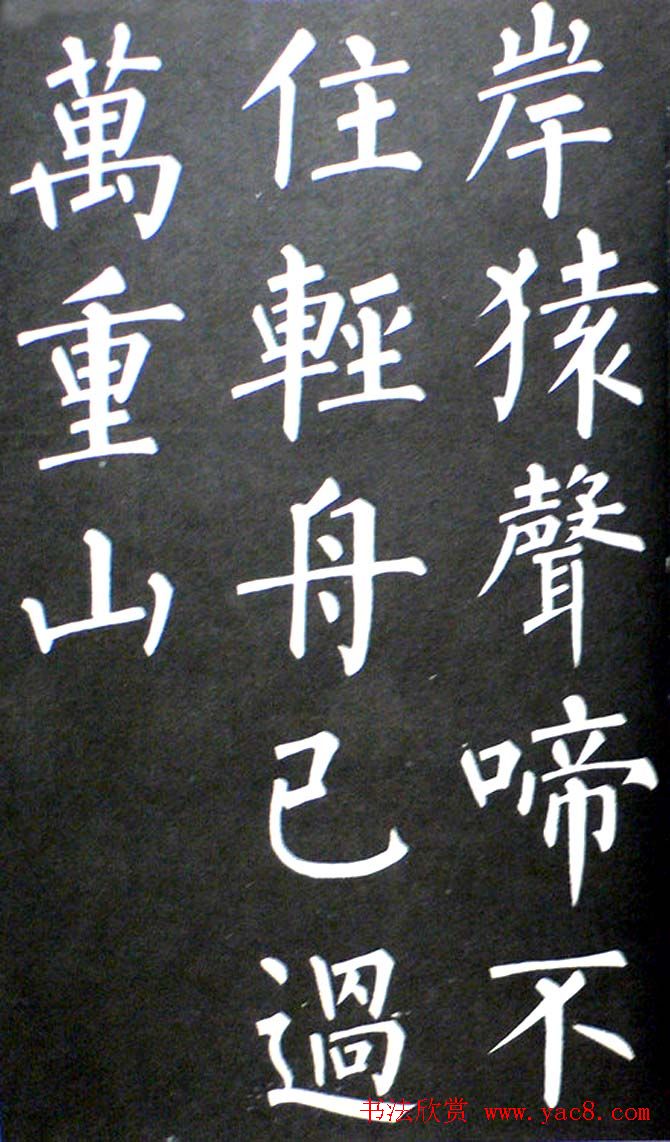 岸猿聲啼不
住輕舟已過
萬重山
书法欣赏 www.yac8.com